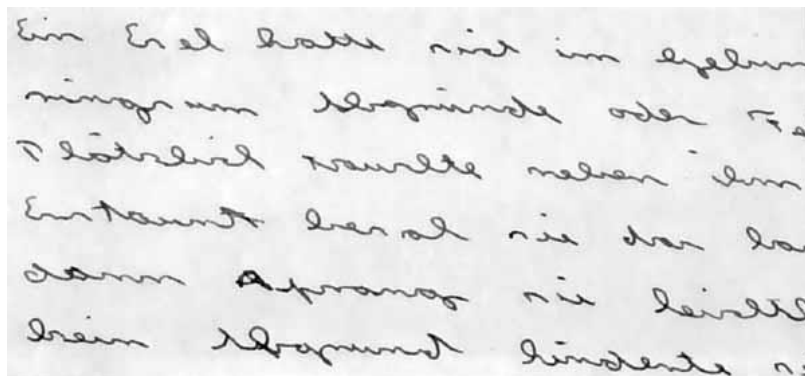 Ein Esel hatte sich im
ringsum Abgründe oder
Plötzlich tauchte neben ihm
Erstaunt besah sie das
dann sprang sie
kein Abgrund hinderte